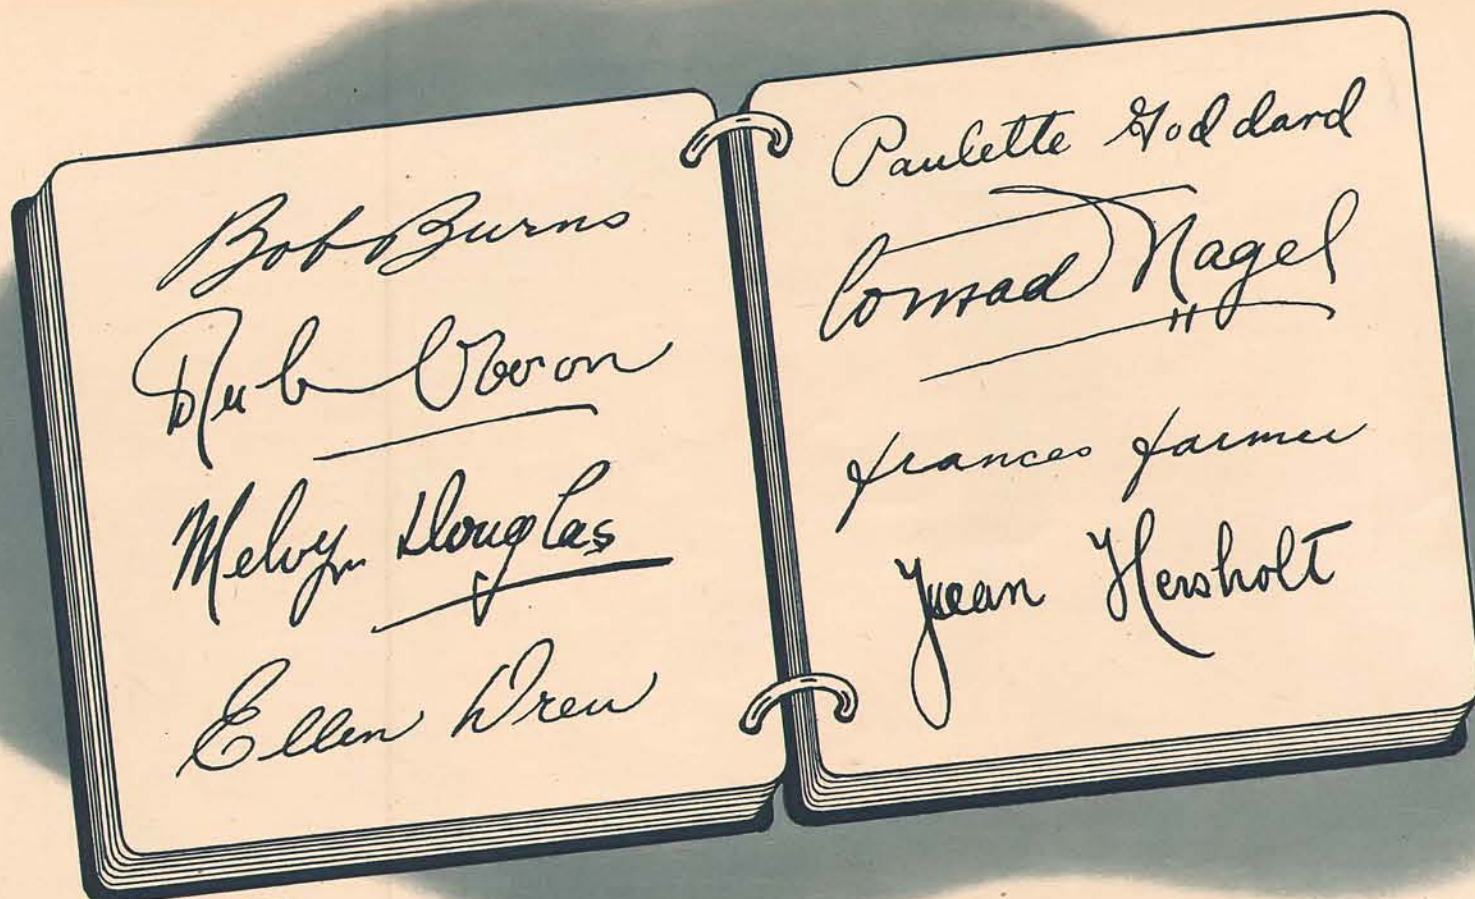 Bob Burns
Merle Oberon
Melvyn Douglas
Ellen Drew
Paulette Goddard
Conrad Nagel
Frances Farmer
Jean Hersholt